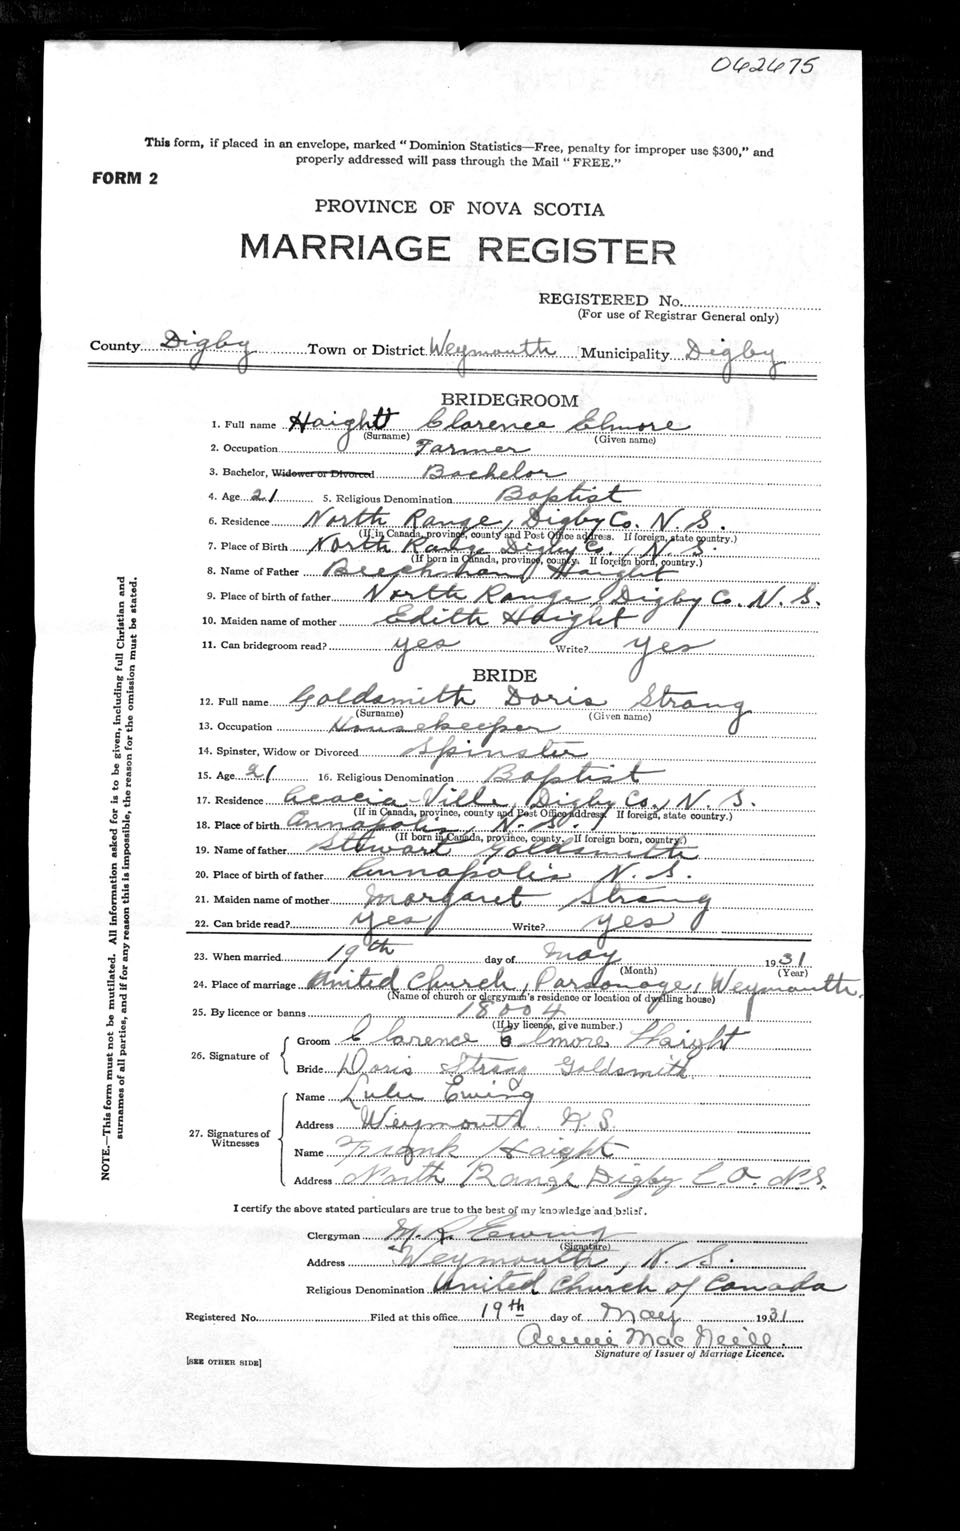 062675
This form, if placed in an envelope, marked "Dominion Statistics—Free, penalty for improper use $300," and
properly addressed will pass through the Mail "FREE."
FORM 2
PROVINCE OF NOVA SCOTIA
MARRIAGE REGISTER
REGISTERED No.
(For use of Registrar General only)
County Digby Town or District Weymouth Municipality Digby
BRIDEGROOM
1. Full name Haight Clarence Elmore
(Surname) (Given name)
2. Occupation Farmer
3. Bachelor, Widower or Divorced Bachelor
4. Age 21 5. Religious Denomination Baptist
6. Residence North Range, Digby Co. N. S.
(If in Canada, province, county and Post Office address. If foreign, state country.)
7. Place of Birth North Range Digby Co., N. S.
(If born in Canada, province, county. If foreign born, country.)
8. Name of Father Beechman Haight
9. Place of birth of father North Range, Digby Co. N. S.
10. Maiden name of mother Edith Haight
11. Can bridegroom read? yes Write? yes
BRIDE
12. Full name Goldsmith Doris Strang
(Surname) (Given name)
13. Occupation Housekeeper
14. Spinster, Widow or Divorced Spinster
15. Age 21 16. Religious Denomination Baptist
17. Residence Acacia-Ville, Digby Co., N. S.
(If in Canada, province, county and Post Office address. If foreign, state country.)
18. Place of birth Annapolis, N. S.
(If born in Canada, province, county. If foreign born, country.)
19. Name of father Stewart Goldsmith
20. Place of birth of father Annapolis N. S.
21. Maiden name of mother Margaret Strang
22. Can bride read? yes Write? yes
23. When married 19th day of May 1931
(Month) (Year)
24. Place of marriage United Church, Parsonage, Weymouth
(Name of church or clergyman's residence or location of dwelling house)
25. By licence or banns 18004
(If by licence, give number.)
26. Signature of
Groom Clarence Elmore Haight
Bride Doris Strang Goldsmith
27. Signatures of Witnesses
Name Lulu Ewing
Address Weymouth N. S.
Name Frank Haight
Address North Range Digby C.O. N.S.
I certify the above stated particulars are true to the best of my knowledge and belief.
Clergyman Ewing
(Signature)
Address Weymouth, N. S.
Religious Denomination United Church of Canada
Registered No. Filed at this office 19th day of May 1931
Annie MacNeill
Signature of Issuer of Marriage Licence.
[SEE OTHER SIDE]
NOTE.—This form must not be mutilated. All information asked for is to be given, including full Christian and
surnames of all parties, and if for any reason this is impossible, the reason for the omission must be stated.